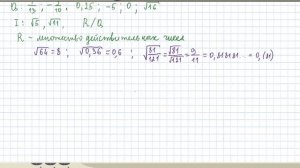 Q: 7/13, -7/10, 0,25; -5, 0; √16
I: √5, √11, R/Q
R - множество действительных чисел
√64 = 8; √0,36 = 0,6; √81/121 = √81/√121 = 9/11 = 0,818181... = 0,(81)